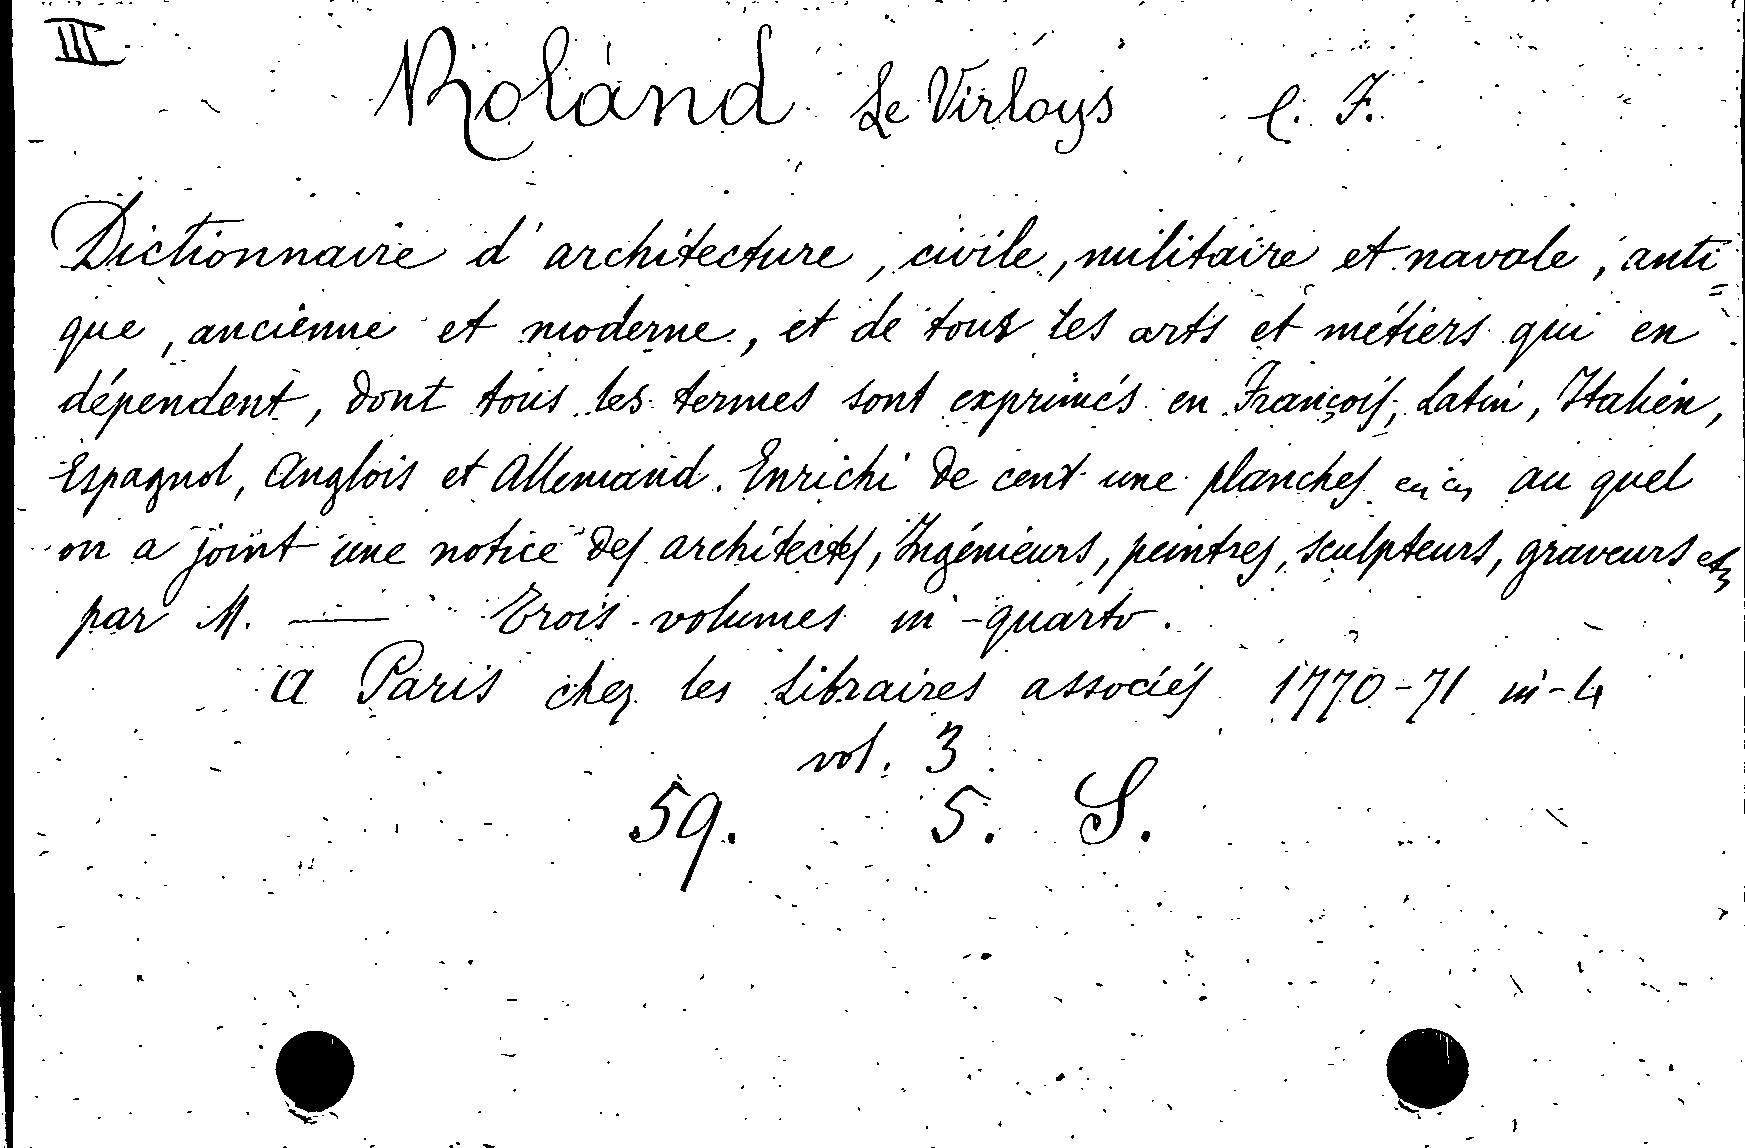 III
Roland Le Virloys C. F.
Dictionnaire d'architecture, civile, militaire et navale, anti=
que, ancienne et moderne, et de tous les arts et métiers qui en
dépendent, dont tous les termes sont exprimés en François, Latin, Italien,
Espagnol, Anglois et Allemand. Enrichi de cent une planches au quel
on a joint une notice des architectes, Ingénieurs, peintres, sculpteurs, graveurs etc
par M. — Trois volumes in-quarto.
A Paris chez les Libraires associés 1770-71 in-4
vol. 3
59. 5. S.